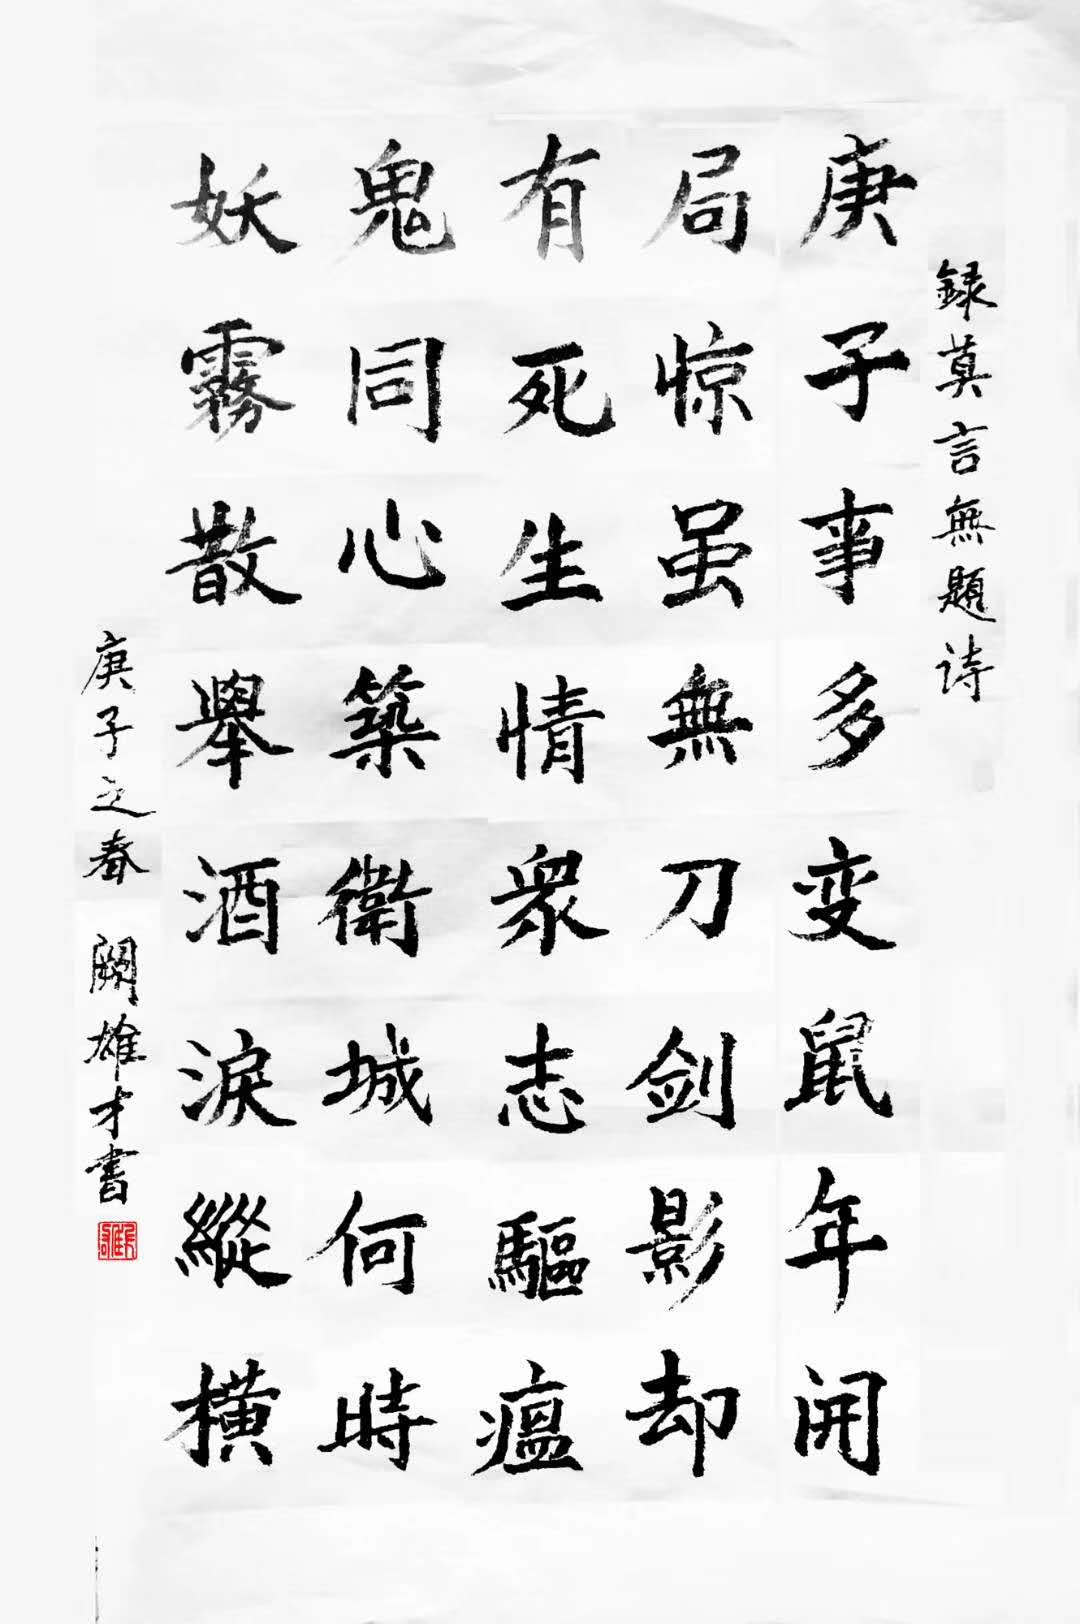 録莫言無題诗
庚子事多变鼠年开
局惊虽無刀剑影却
有死生情衆志驅瘟
鬼同心築衛城何時
妖霧散舉酒淚縱橫
庚子之春 阙雄才書